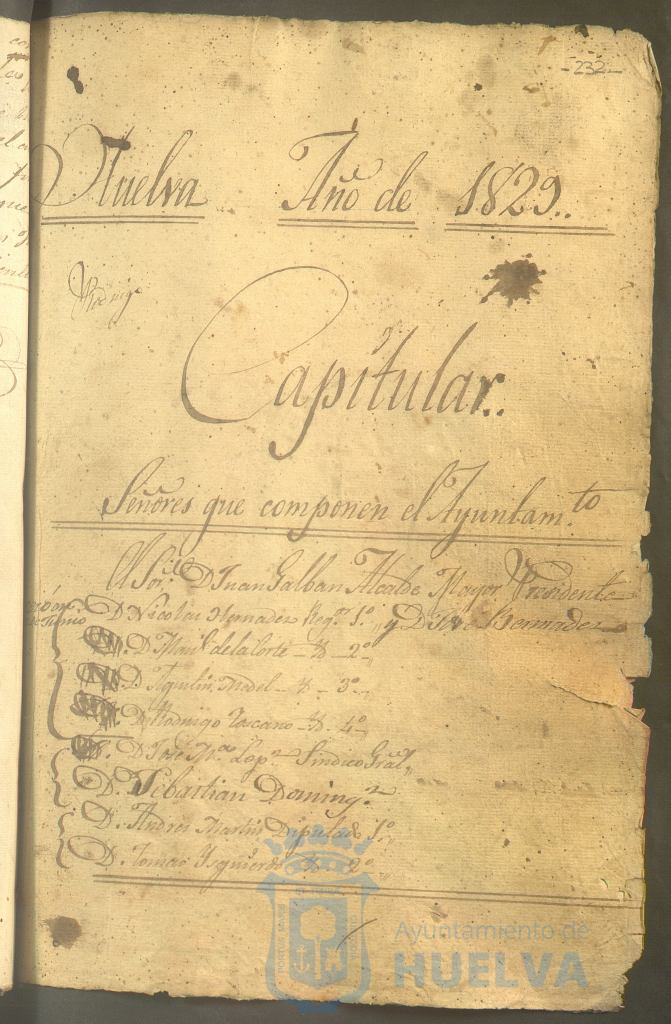 -232-
Huelva Año de 1829..
Rodrigo
Capitular..
Señores que componen el Ayuntam.to
El Sor. D Juan Galban Alcalde Mayor Presidente
D. Nicolas Hernadez Reg.r 1.º y D. José Bermudez
D. Man.l de la Corte _ Y. _ 2.º
D. Agustin Medel _ Y. _ 3.º
D. Rodrigo Toscano _ Y. _ 4.º
D. José M.a Lop.z Sindico Gral,,
D. Sebastian Doming.z
D. Andres Martin Diputado 1.º
D. Tomas Yzquierdo _ Y. _ 2.º
Ayuntamiento de
HUELVA